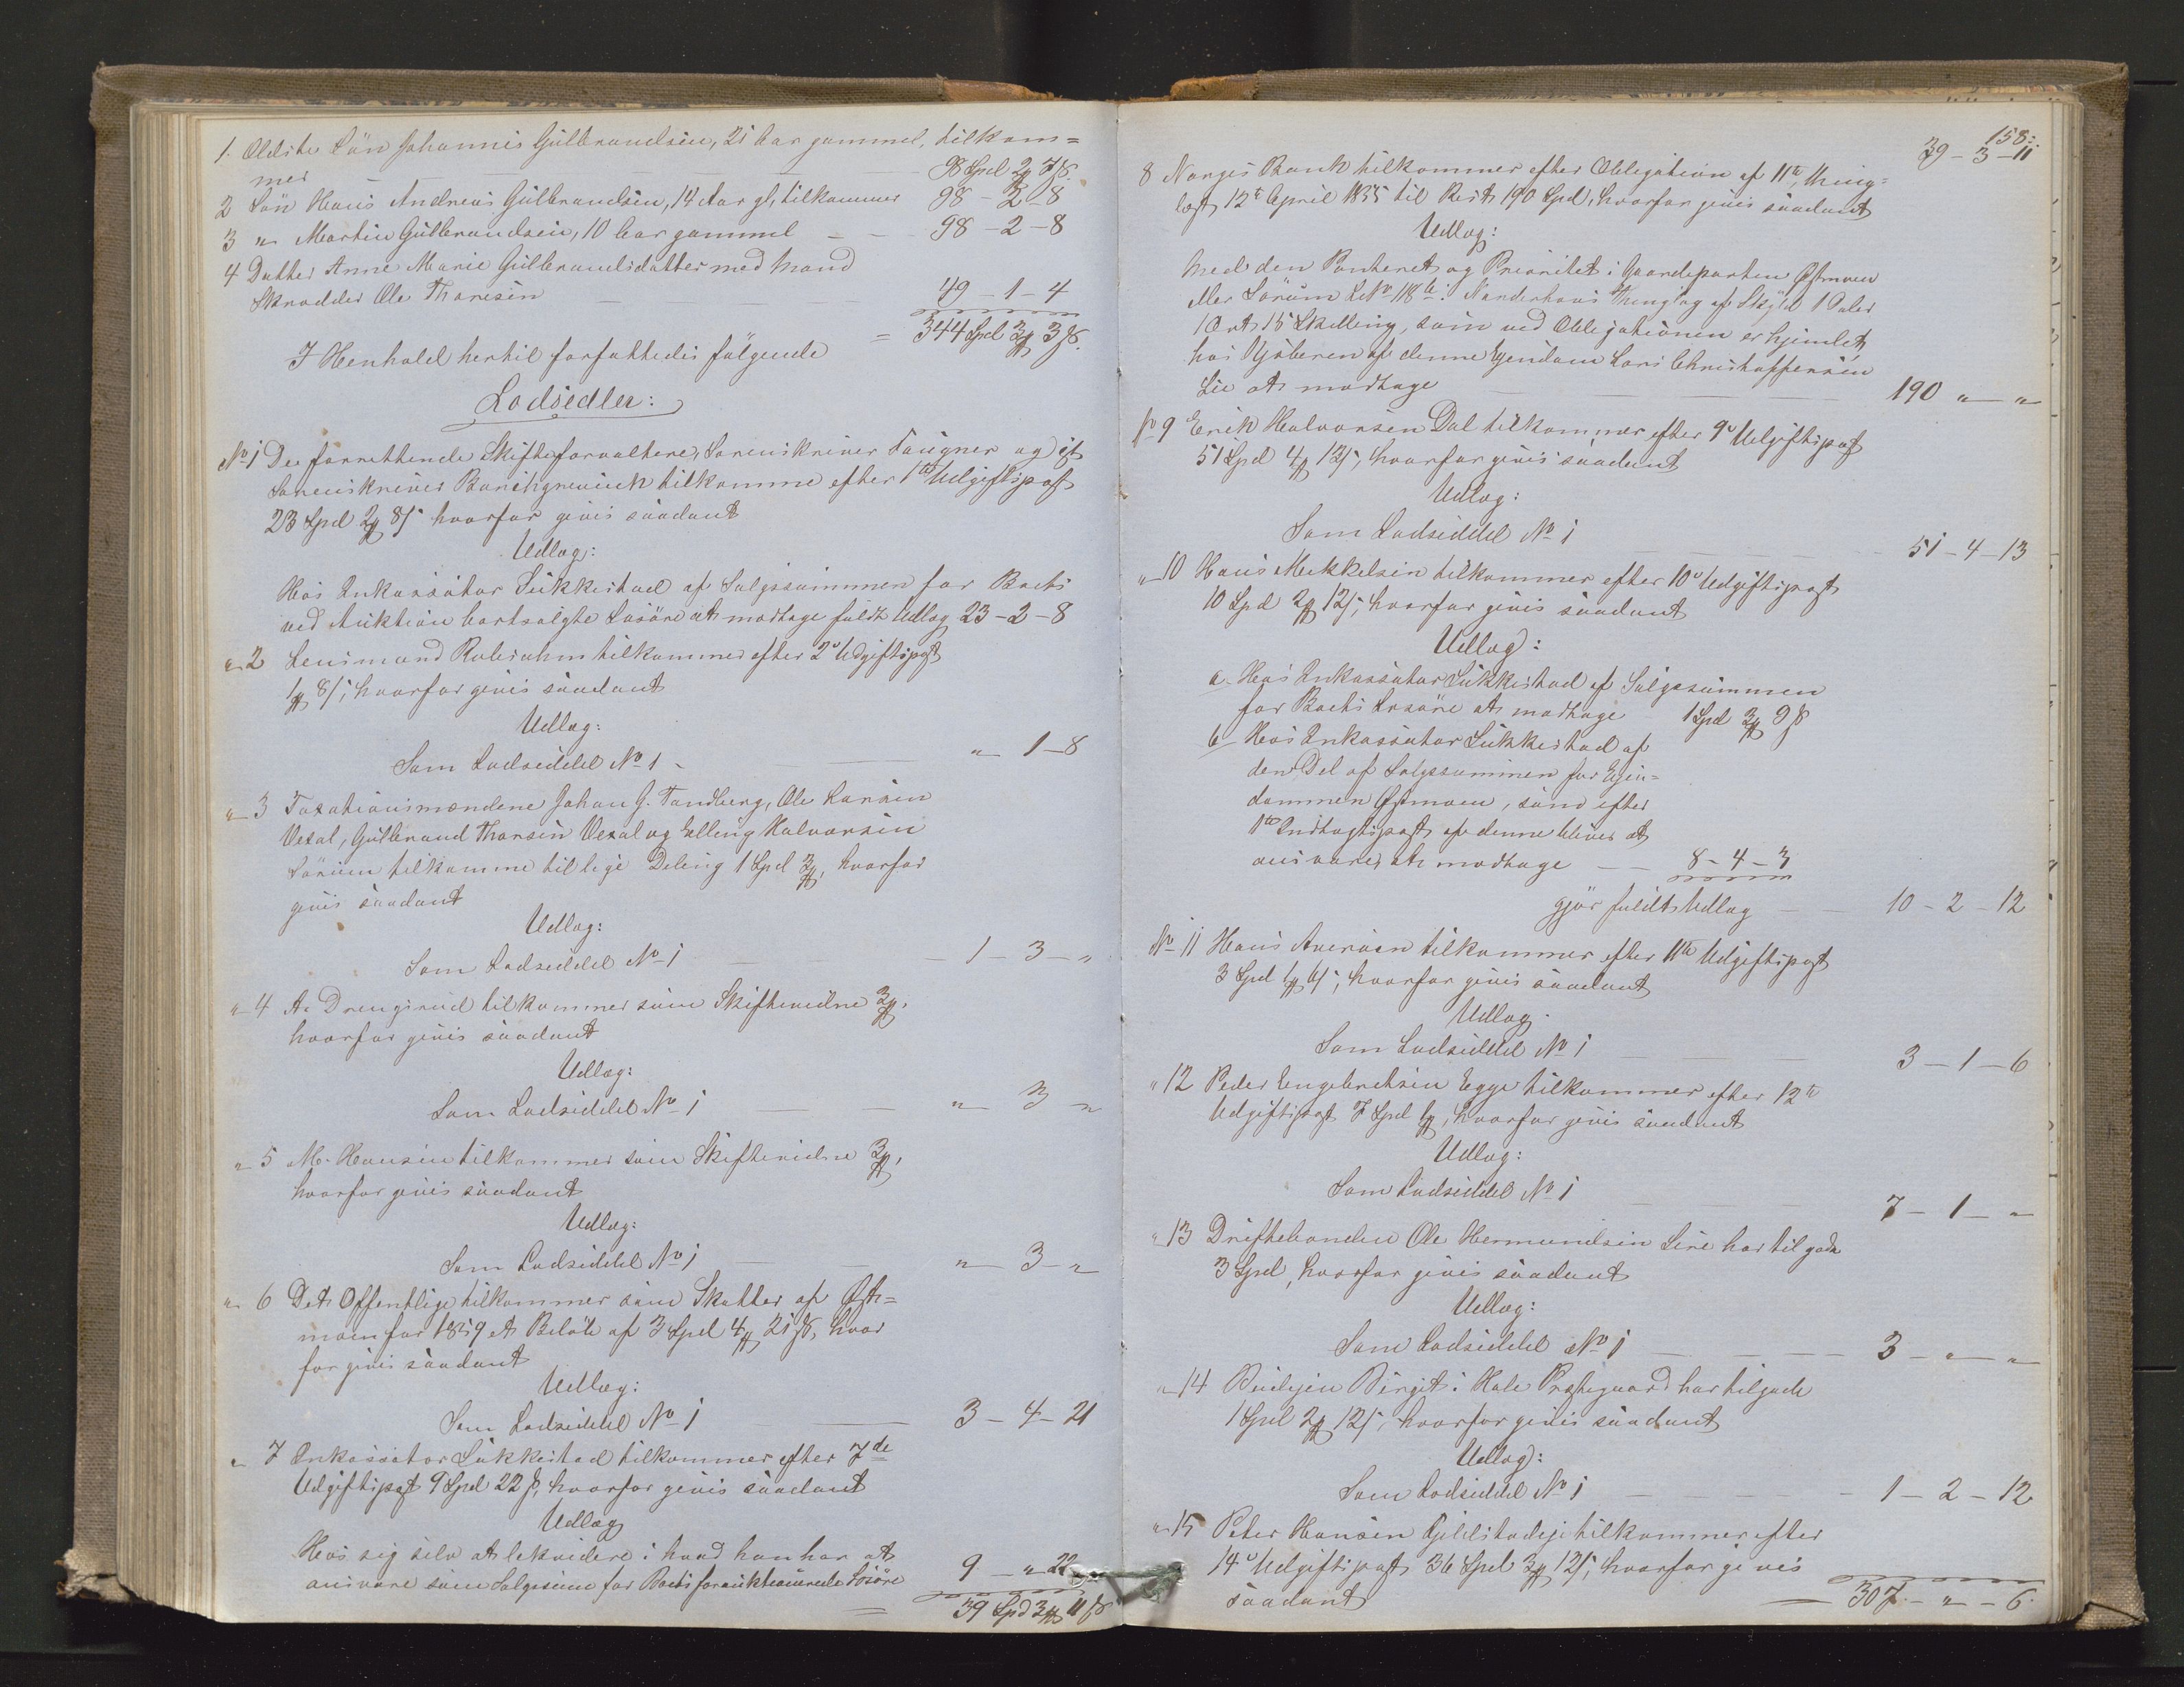 1. Ældste Søn Johannes Gulbrandsen, 21 Aar gammel, tilkom=
mer — 98 Spd 2 # 7 ß.
2 Søn Hans Andreas Gulbrandsen, 14 Aar gl, tilkommer 98 - 2 - 8
3 " Martin Gulbrandsen, 10 Aar gammel — 98 - 2 - 8
4 Datter Anne Marie Gulbrandsdatter med Mand
Skrædder Ole Thoresen — 49 - 1 - 4
= 344 Spd 3 # 3 ß.
I Henhold hertil forfattedes følgende
Lodsedler:
No 1 De forrettende Skifteforvaltere, Sorenskriver Faugner og cst
Sorenskriver Borchgrevink tilkomme efter 1ste Udgiftspost
23 Spd 2 # 8 ß hvorfor gives saadant
Udlæg:
Hos Inkassator Lükkestad af Salgssummen for Boets
ved Auktion bortsolgte Løsøre at modtage fuldt Udlæg 23 - 2 - 8
" 2 Lensmand Robsahm tilkommer efter 2' Udgiftspost
1 # 8 ß, hvorfor gives saadant
Udlæg:
Som Lodseddel No 1 — " 1 - 8
" 3 Taxationsmændene Johan G. Tandberg, Ole Larsen
Vexal, Gulbrand Thorsen Vexal og Elling Halvorsen
Sørum tilkomme til lige Deling 1 Spd 3 #, hvorfor
gives saadant
Udlæg:
Som Lodseddel No 1 — 1 - 3 - "
" 4 A. Drengsrud tilkommer som Skiftevidne 3 #,
hvorfor gives saadant
Udlæg:
Som Lodseddel No 1 — " 3 "
" 5 M. Hansen tilkommer som Skiftevidne 3 #,
hvorfor gives saadant
Udlæg:
Som Lodseddel No 1 — " 3 - "
" 6 Det Offentlige tilkommer som Skatter af Øst=
moen for 1859 et Beløb af 3 Spd 4 # 21 ß, hvor
for gives saadant
Udlæg:
Som Lodseddel No 1 — 3 - 4 - 21
" 7 Inkassator Lükkestad tilkommer efter 7de
Udgiftspost 9 Spd 22 ß, hvorfor gives saadant
Udlæg
Hos sig selv at lekvidere i hvad han har at
ansvare som Salgssum for Boets forauktionerede Løsøre 9 - " 22
= 39 Spd 3 # 11 ß
158:
39 - 3 - 11
8 Norges Bank tilkommer efter Obligation af 11te, thing=
læst 12te April 1855 til Rest 190 Spd, hvorfor gives saadant
Udlæg:
med den Panteret og Prioritet i Gaardeparten Østmoen
eller Sørum L No 118 b. Norderhovs Thinglag af Skyld 1 Daler
1 Ort 15 Skilling, som ved Obligationen er hjemlet,
hos Kjøberen af denne Ejendom Lars Christoffersen
Lie at modtage — 190 " "
No 9 Erik Halvorsen Dal tilkommer efter 9' Udgiftspost
51 Spd 4 # 13 ß, hvorfor gives saadant
Udlæg:
Som Lodseddel No 1 — 51 - 4 - 13
" 10 Hans Mikkelsen tilkommer efter 10' Udgiftspost
10 Spd 2 # 12 ß, hvorfor gives saadant
Udlæg:
a. Hos Inkassator Lükkestad af Salgssummen
for Boets Løsøre at modtage 1 Spd 3 # 9 ß
b, Hos Inkassator Lükkestad af
den Del af Salgssummen for Ejen=
dommen Østmoen, som efter
1te Indtægtspost af denne bliver at
ansvare, at modtage — 8 - 4 - 3
gjør fuldt Udlæg — 10 - 2 - 12
No 11 Hans Aversen tilkommer efter 11te Udgiftspost
3 Spd 1 # 6 ß, hvorfor gives saadant
Udlæg.
Som Lodseddel No 1 — 3 - 1 - 6
" 12 Peder Engebretsen Egge tilkommer efter 12te
Udgiftspost 7 Spd 1 #, hvorfor gives saadant
Udlæg:
Som Lodseddel No 1 — 7 - 1 - "
" 13 Driftebonden Ole Hermundsen Lire har tilgode
3 Spd, hvorfor gives saadant
Udlæg:
Som Lodseddel No 1 — 3 - " - "
" 14 Budejen Birgit i Hole Præstegaard har tilgode
1 Spd 2 # 12 ß, hvorfor gives saadant
Udlæg:
Som Lodseddel No 1 — 1 - 2 - 12
" 15 Peter Hansen Gjeldstadeje tilkommer efter
14' Udgiftspost 36 Spd 3 # 12 ß, hvorfor gives
saadant — 307 - " - 6.